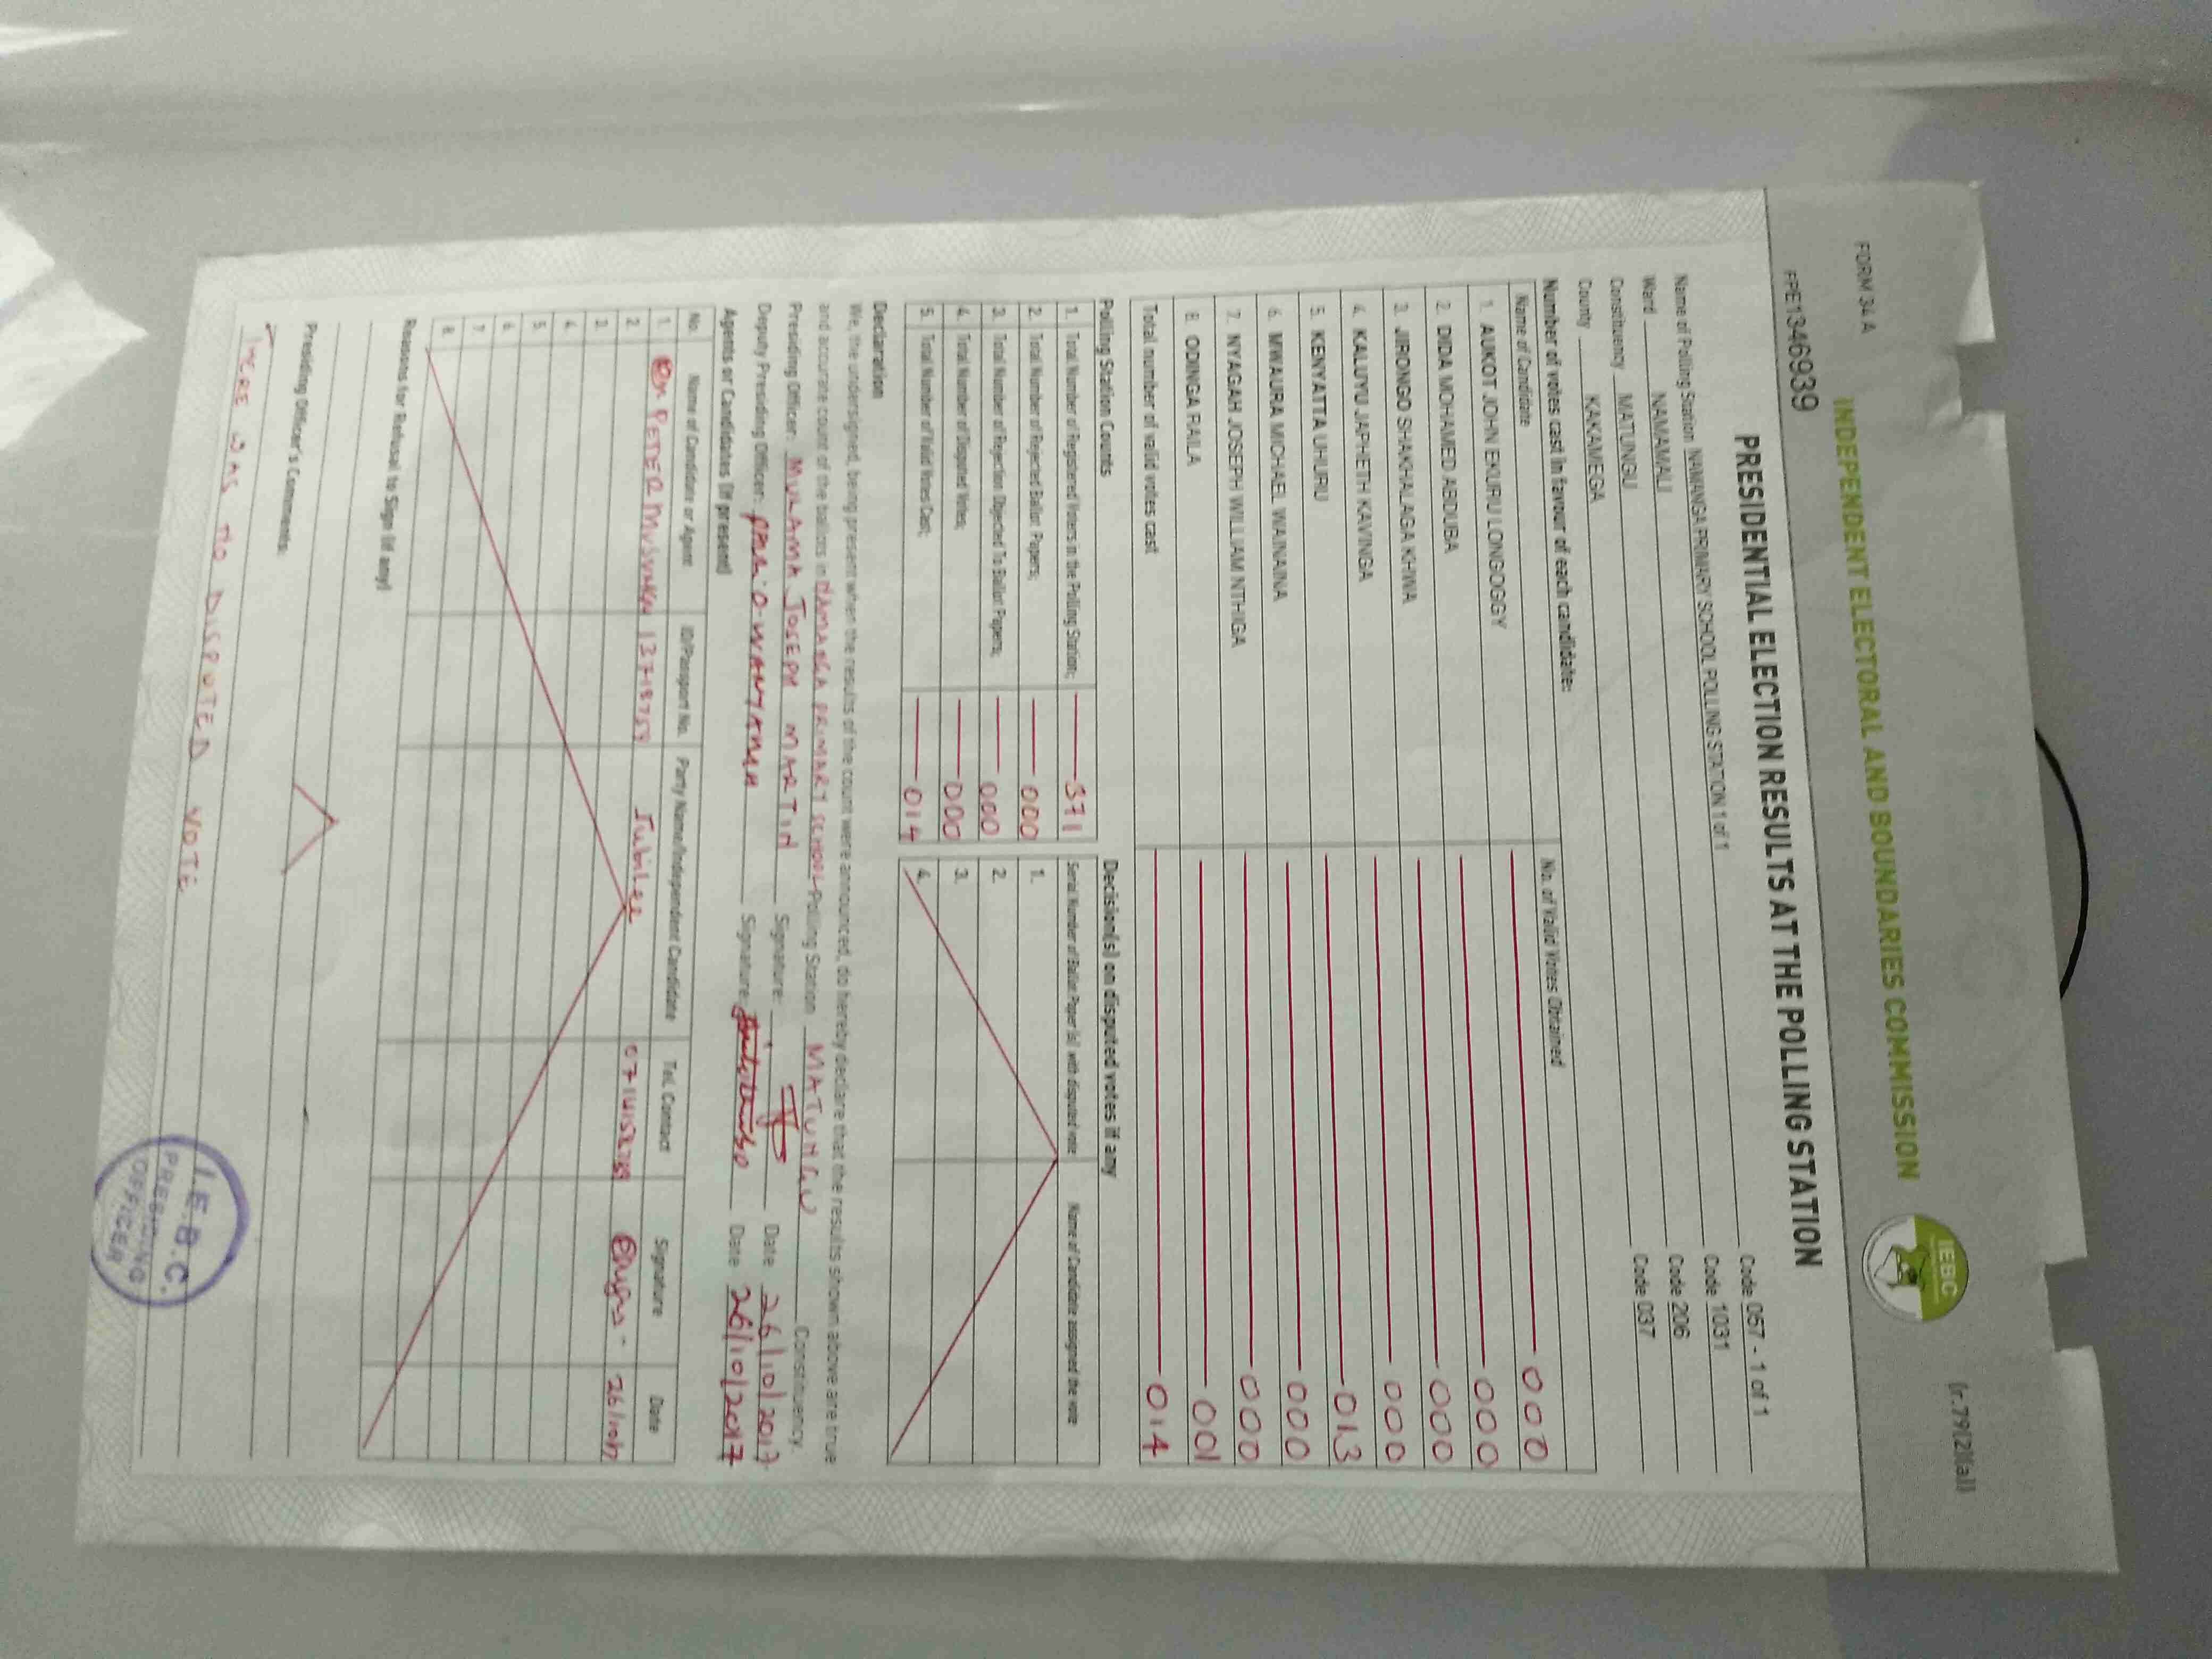 FORM 34 A
[r.79(2)(a)]
INDEPENDENT ELECTORAL AND BOUNDARIES COMMISSION
IEBC
PPE1346939
PRESIDENTIAL ELECTION RESULTS AT THE POLLING STATION
Name of Polling Station NAMANGA PRIMARY SCHOOL POLLING STATION 1 of 1 Code 057 - 1 of 1
Ward NAMAMALI Code 1031
Constituency MATUNGU Code 206
County KAKAMEGA Code 037
Number of votes cast in favour of each candidate:
Name of Candidate No. of Valid Votes Obtained
1. AUKOT JOHN EKURU LONGOGGY 000
2. DIDA MOHAMED ABDUBA 000
3. JIRONGO SHAKHALAGA KHWA 000
4. KALUYU JAPHETH KAVINGA 000
5. KENYATTA UHURU 013
6. MWAURA MICHAEL WAINAINA 000
7. NYAGAH JOSEPH WILLIAM NTHIGA 000
8. ODINGA RAILA 001
Total number of valid votes cast 014
Polling Station Counts
1. Total Number of Registered Voters in the Polling Station; 371
2. Total Number of Rejected Ballot Papers; 000
3. Total Number of Rejection Objected To Ballot Papers; 000
4. Total Number of Disputed Votes; 000
5. Total Number of Valid Votes Cast; 014
Decision(s) on disputed votes if any
Serial Number of Ballot Paper (s) with disputed vote Name of Candidate assigned the vote
1.
2.
3.
4.
Declaration
We, the undersigned, being present when the results of the count were announced, do hereby declare that the results shown above are true
and accurate count of the ballots in NAMANGA PRIMARY SCHOOL Polling Station MATUNGU Constituency.
Presiding Officer: MULAMA JOSEPH MARTIN Signature: Date 26/10/2017
Deputy Presiding Officer: PAUL O. WANYAMA Signature: Date 26/10/2017
Agents or Candidates (if present)
No. Name of Candidate or Agent ID/Passport No. Party Name/Independent Candidate Tel. Contact Signature Date
1. PETER Jubilee
2.
3.
4.
5.
6.
7.
8.
Reasons for Refusal to Sign (if any)
Presiding Officer's Comments:
THERE WAS NO DISPUTED VOTE
I.E.B.C.
PRESIDING
OFFICER